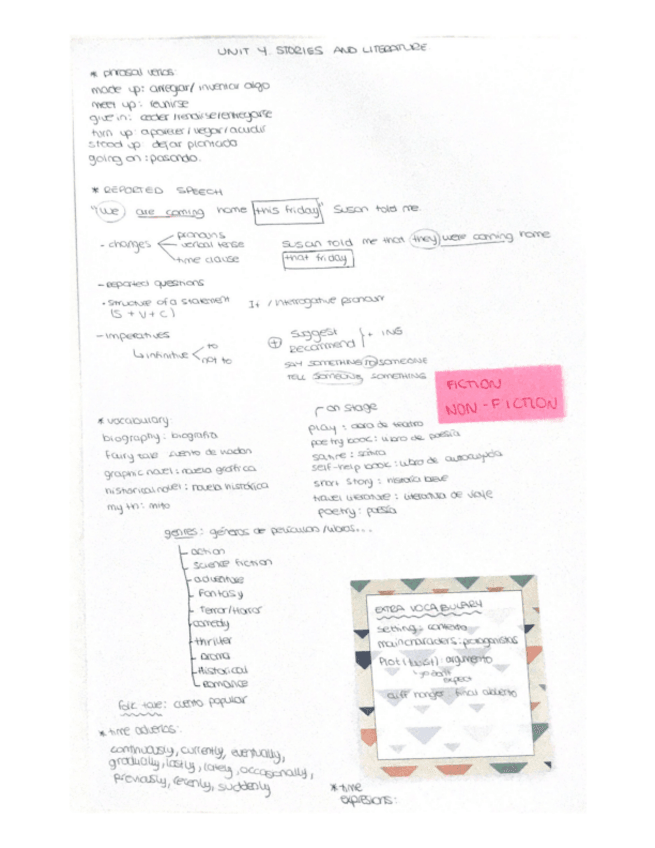 UNIT 4. STORIES AND LITERATURE
* phrasal verbs:
made up: arreglar/ inventar algo
meet up: reunirse
give in: ceder/rendirse/entregarte
turn up: aparecer/llegar/acudir
stood up: dejar plantada
going on: pasando.
* REPORTED SPEECH
"We are coming home this friday" Susan told me.
- changes
pronouns
verbal tense
time clause
Susan told me that they were coming home
that friday
- reported questions
· structure of a statement
(S + V + C)
If / interrogative pronoun
- imperatives
infinitive
to
not to
+ suggest
recommend
+ ING
SAY SOMETHING TO SOMEONE
TELL SOMEONE SOMETHING
FICTION
NON-FICTION
* vocabulary:
biography: biografía
fairy tale: cuento de hadas
graphic novel: novela gráfica
historical novel: novela histórica
myth: mito
on stage
play: obra de teatro
poetry book: libro de poesía
satire: sátira
self-help book: libro de autoayuda
short story: historia breve
travel literature: literatura de viaje
poetry: poesía
genres: géneros de películas/libros...
action
science fiction
adventure
Fantasy
Terror/Horror
comedy
thriller
Drama
Historical
Romance
folk tale: cuento popular
* time adverbs:
continuously, currently, eventually,
gradually, lastly, lately, occasionally,
previously, recently, suddenly
EXTRA VOCABULARY
setting: contexto
main characters: protagonistas
Plot (twist): argumento
expect
cliff hanger: final abierto
* time
expressions: